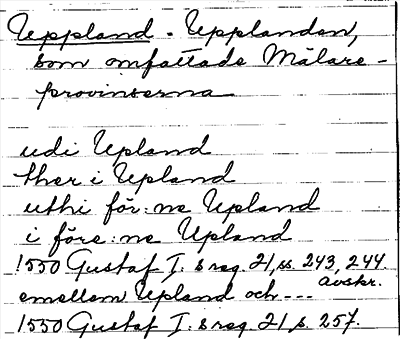 Uppland - Upplanden,
som omfattade Mälare-
provinserna
udi Upland
ther i Upland
uthi för:ne Upland
i före:ne Upland
1550 Gustaf I:s reg. 21, ss. 243, 244.
avskr.
emellom Upland och ---
1550 Gustaf I:s reg. 21, s. 257.